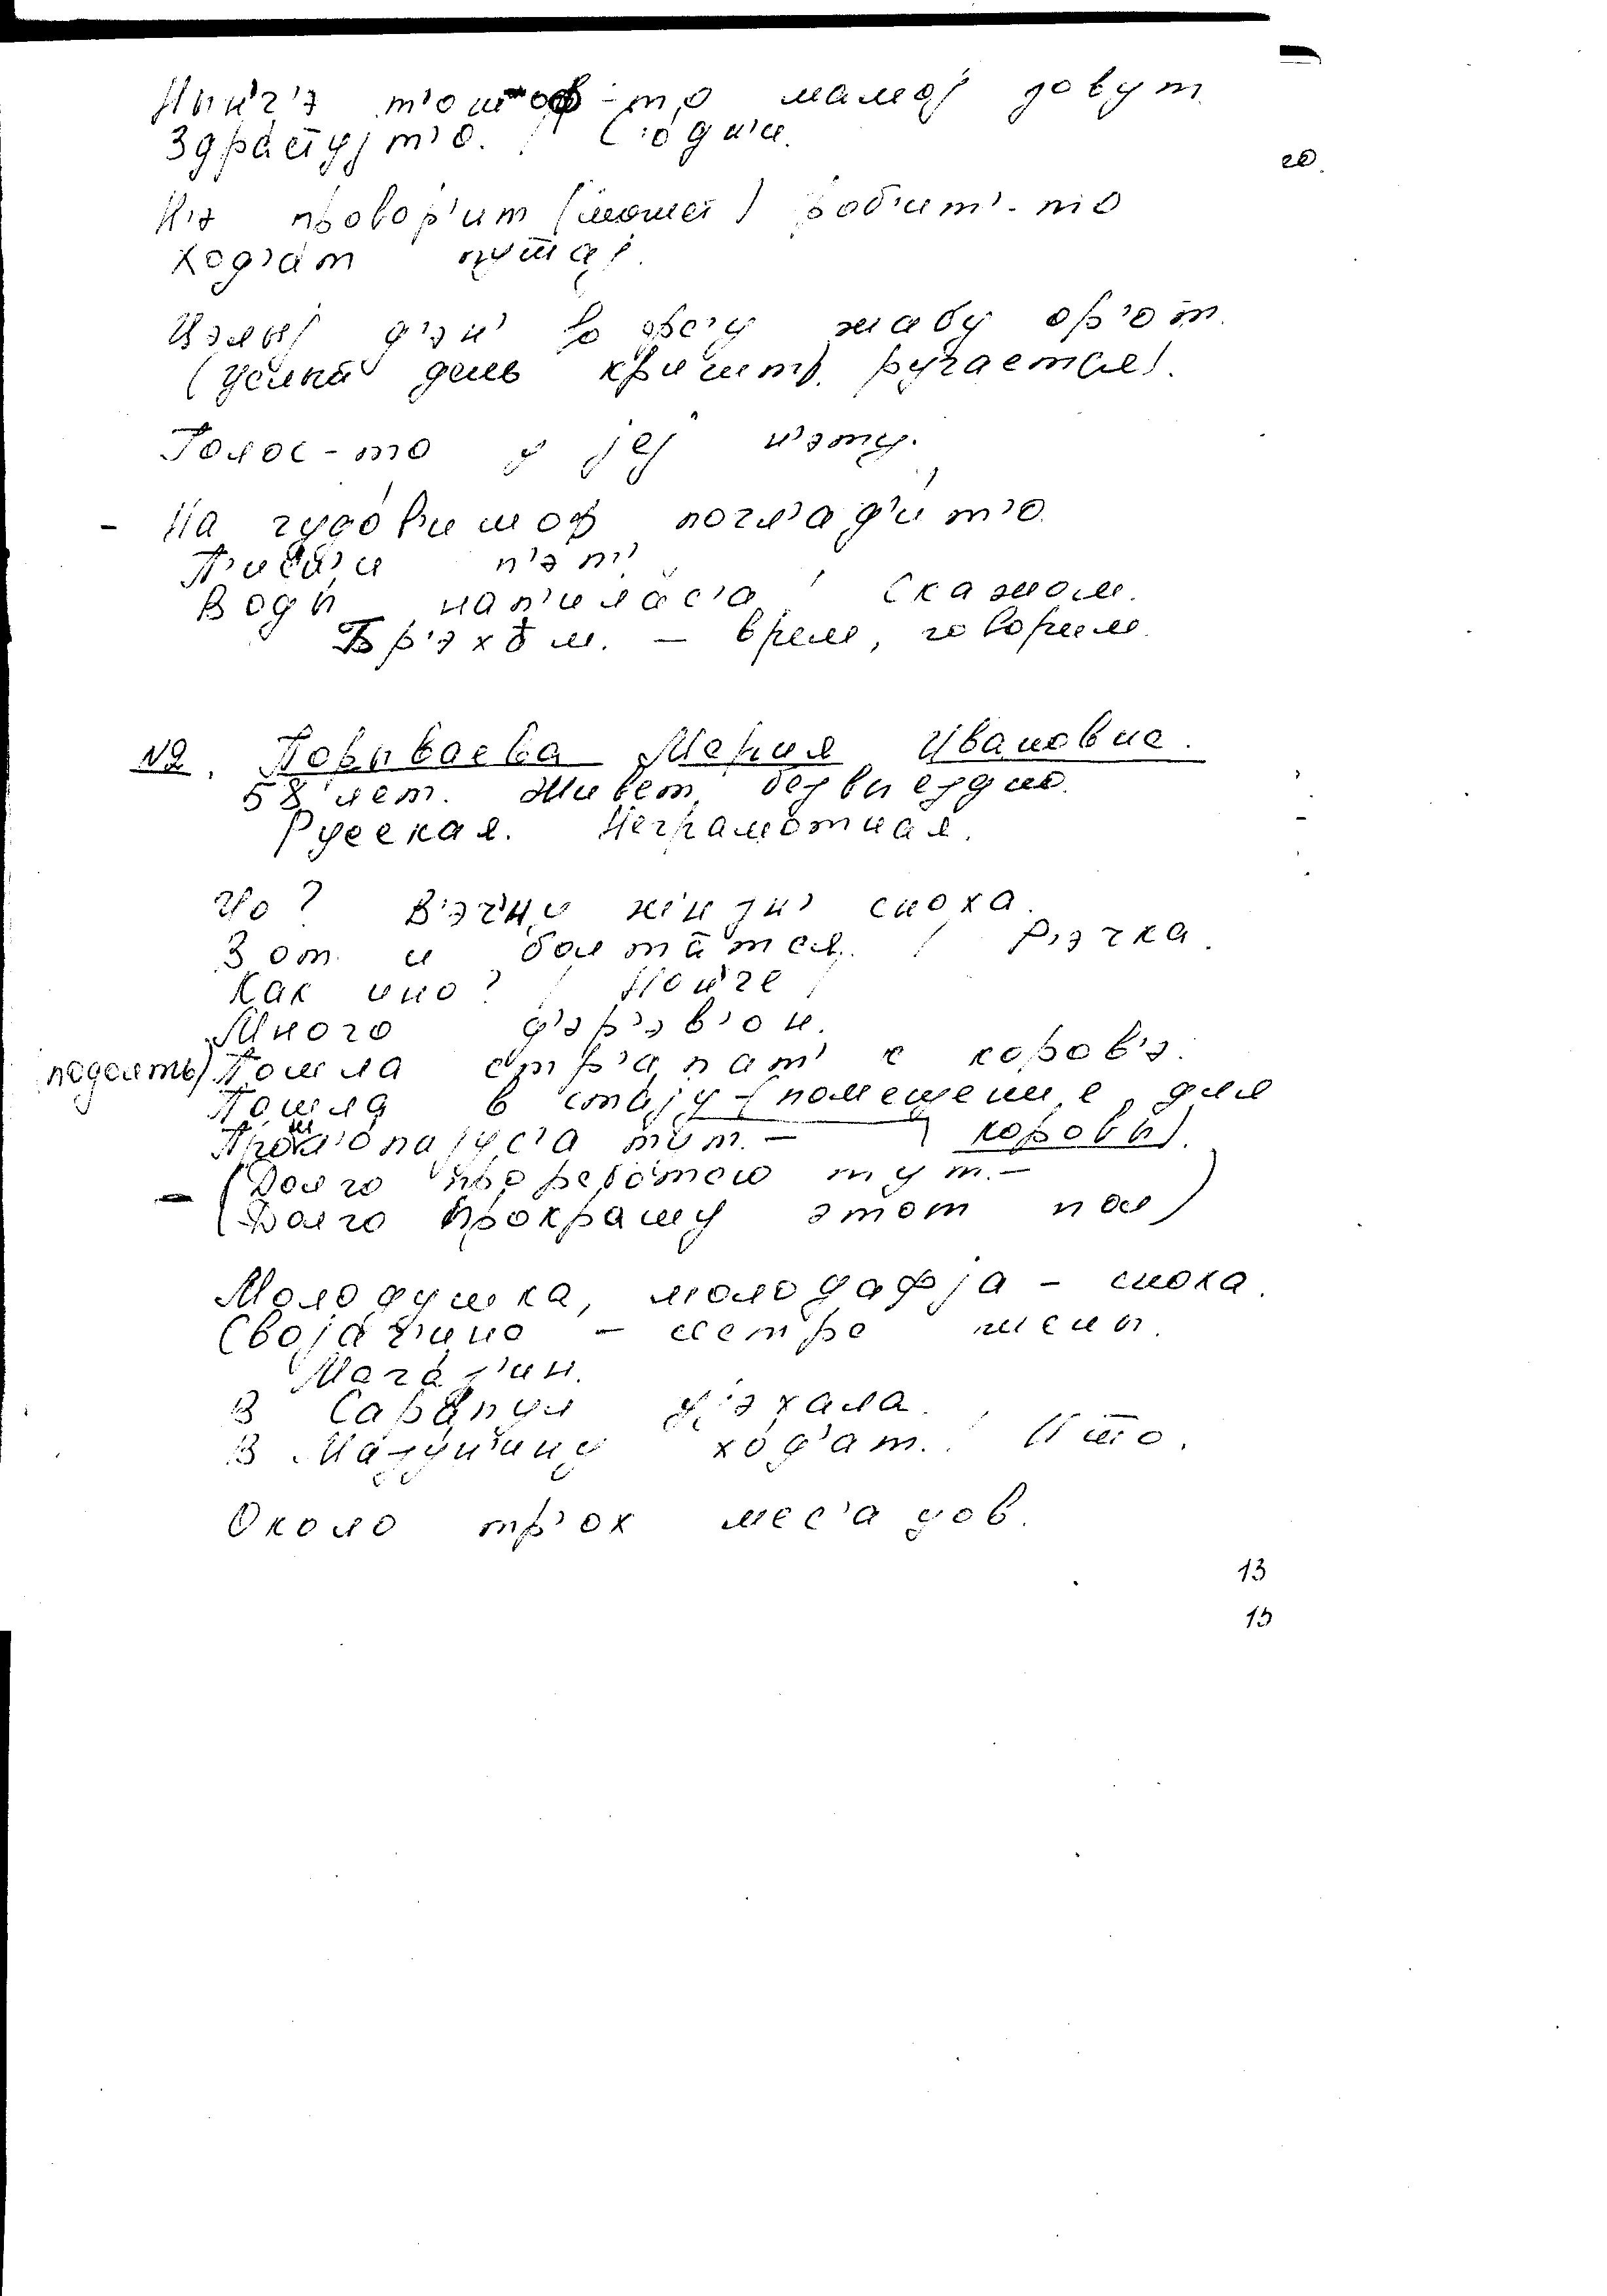 Нын'г'э т'ошшоф-то мамој зовут.
Здрастујт'о. / С'одн'и.
20.
Н'э проворит (может) робит'-то
ход'ат путај.
Цэлыј д'эн' во фс'у жабу ор'от.
(целый день кричит, ругается).
Голос-то у јеј н'эту.
- На чудов'ишшоф погл'ад'ит'о.
П'эт'
Воды нап'илас'а / Скажом.
Бр'эхом. - врем, говорим.
№2. Порываева Мария Ивановна.
58 лет. Живет безвыездно.
Русская. Неграмотная.
Чо? сноха.
Зот и болтатся. / Р'эчка.
Как ино? / Нон'че /
Много д'ер'эв'он.
подоить) Пошла стр'апат' к коров'э.
Пошла в стају - (помещение для
коровы).
тут. -
- (Долго проработаю тут. -
(Долго прокрашу этот пол)
Молодушка, молодафја - сноха.
Својач'ина - сестра жены.
Магаз'ин.
В Сарапул ујэхала.
В Мазун'ину ход'ат. / Што.
Около тр'ох мес'ацов.
13
15